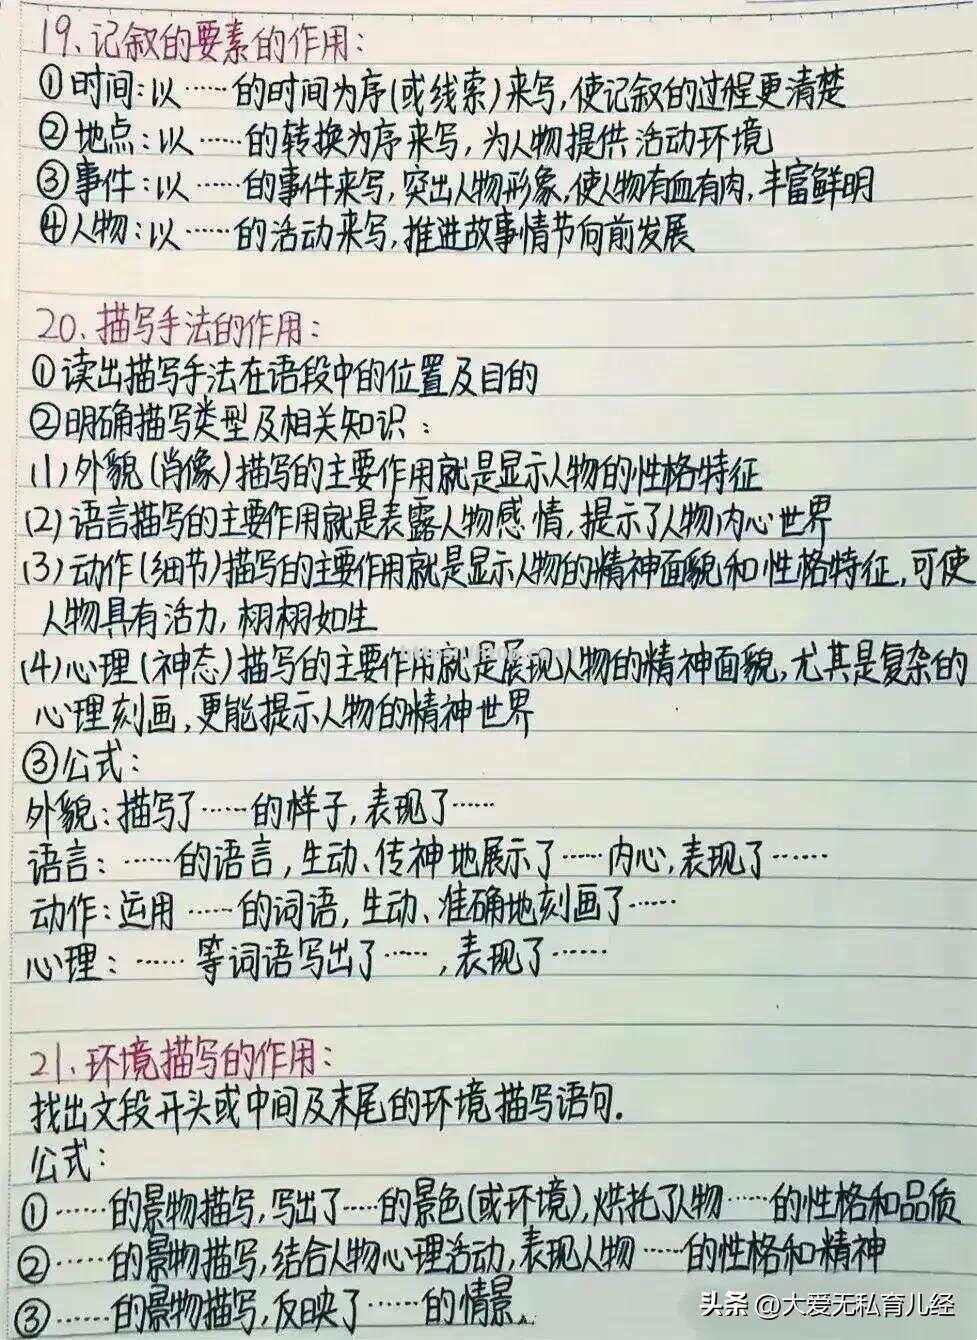 19、记叙的要素的作用：
①时间：以……的时间为序(或线索)来写,使记叙的过程更清楚
②地点：以……的转换为序来写,为人物提供活动环境
③事件：以……的事件来写,突出人物形象,使人物有血有肉,丰富鲜明
④人物：以……的活动来写,推进故事情节向前发展
20、描写手法的作用：
①读出描写手法在语段中的位置及目的
②明确描写类型及相关知识：
(1)外貌(肖像)描写的主要作用就是显示人物的性格特征
(2)语言描写的主要作用就是表露人物感情,提示了人物内心世界
(3)动作(细节)描写的主要作用就是显示人物的精神面貌和性格特征,可使
人物具有活力,栩栩如生
(4)心理(神态)描写的主要作用就是展现人物的精神面貌,尤其是复杂的
心理刻画,更能提示人物的精神世界
③公式：
外貌：描写了……的样子,表现了……
语言：……的语言,生动、传神地展示了……内心,表现了……
动作：运用……的词语,生动、准确地刻画了……
心理：……等词语写出了……,表现了……
21、环境描写的作用：
找出文段开头或中间及末尾的环境描写语句.
公式：
①……的景物描写,写出了……的景色(或环境),烘托了人物……的性格和品质
②……的景物描写,结合人物心理活动,表现人物……的性格和精神
③……的景物描写,反映了……的情景.
头条 @大爱无私育儿经